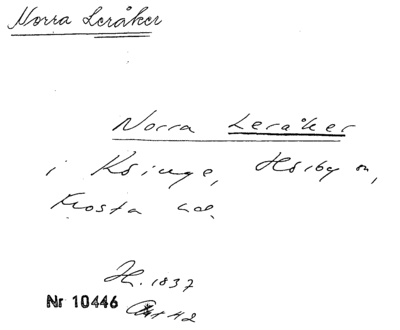 Norra Leråker
Norra Leråker
i Ksinge, Hörby sn,
Frosta hd.
H. 1837
Nr 10446